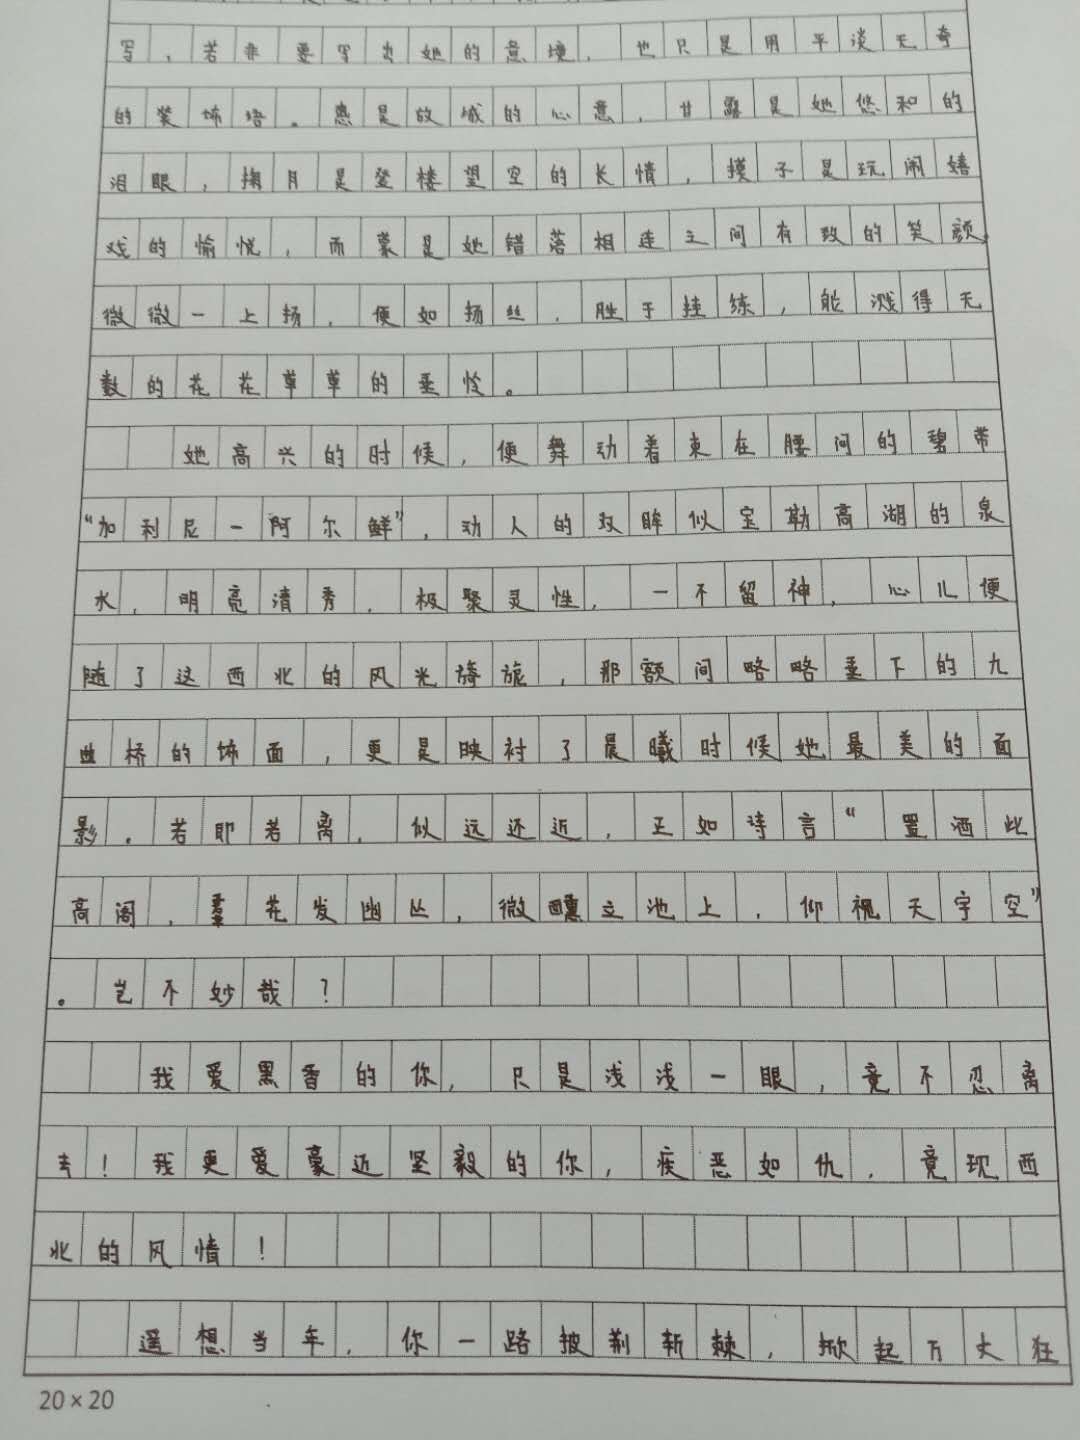 写，若非要写出她的意境，也只是用平淡无奇
的装饰语。惑是放城的心意，甘露是她悠和的
泪眼，掬月是登楼望空的长情，摸子是玩闹嬉
戏的愉悦，而蒙是她错落相连之间有致的笑颜，
微微一上扬，便如扬丝，胜于挂练，能溅得无
数的花花草草的垂怜。
她高兴的时候，便舞动着束在腰间的碧带
“加利尼一阿尔鲜”，动人的双眸似宝勒高湖的泉
水，明亮清秀，极聚灵性，一不留神，心儿便
随了这西北的风光旖旎，那额间略略垂下的九
曲桥的饰面，更是映衬了晨曦时候她最美的面
影。若即若离，似远还近，正如诗言“置酒此
高阁，羣花发幽丛，微醺立池上，仰视天宇空”
。岂不妙哉？
我爱黑香的你，只是浅浅一眼，竟不忍离
去！我更爱豪迈坚毅的你，疾恶如仇，竟现西
北的风情！
遥想当年，你一路披荆斩棘，掀起万丈狂
20×20